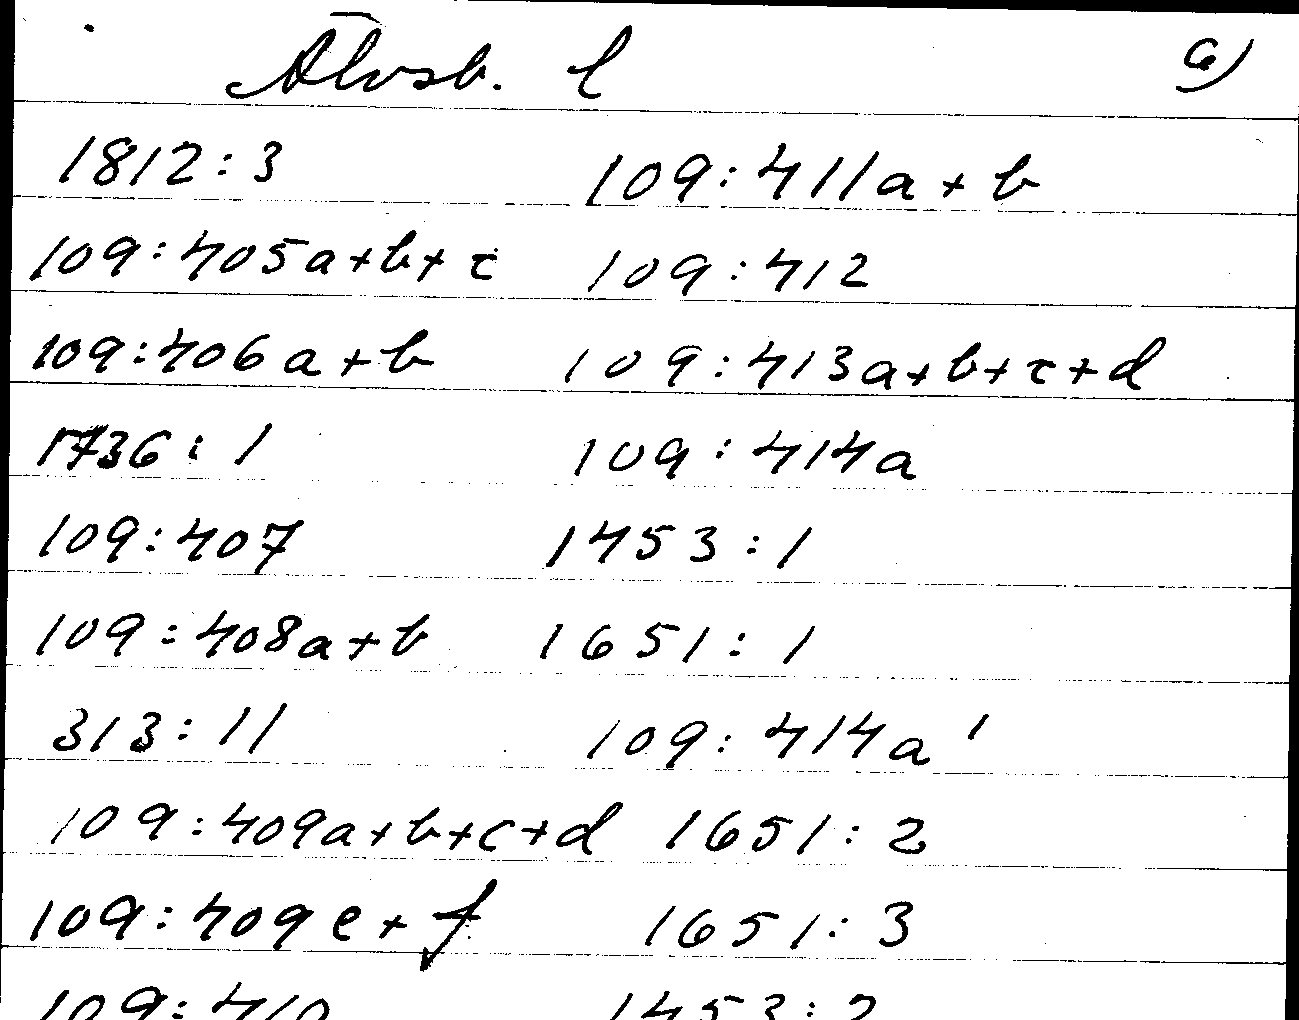 Älvsb. l 6)
1812:3 109:411a+b
109:405a+b+c 109:412
109:406a+b 109:413a+b+c+d
1736:1 109:414a
109:407 1453:1
109:408a+b 1651:1
313:11 109:414a1
109:409a+b+c+d 1651:2
109:409e+f 1651:3
109:410 1453:2